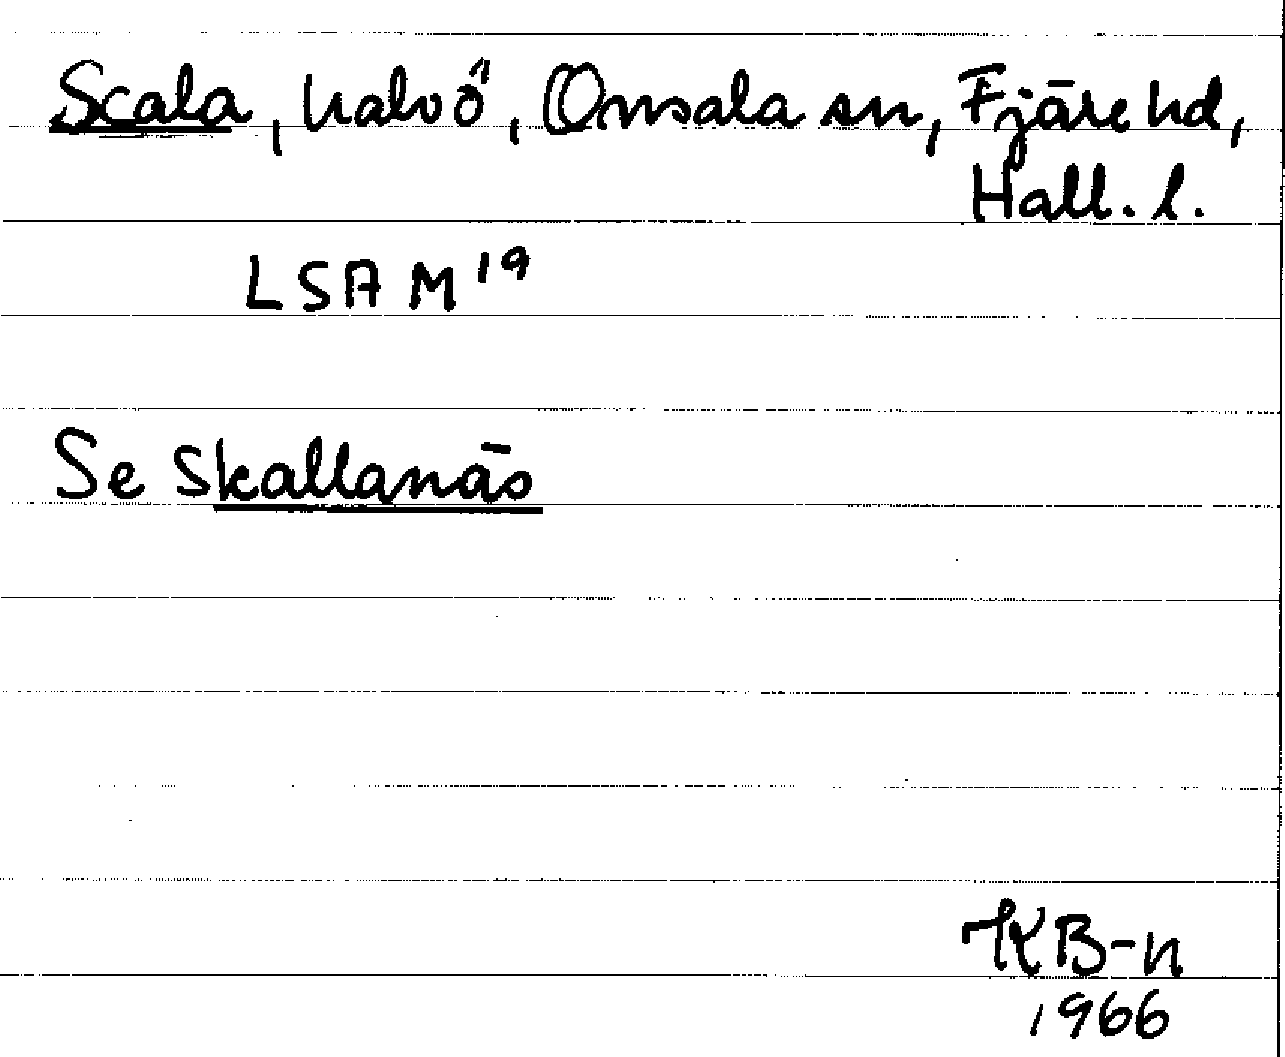 Scala, halvö, Onsala sn, Fjäre hd,
Hall. l.
LSA M¹⁹
Se Skallanäs
KB-n
1966